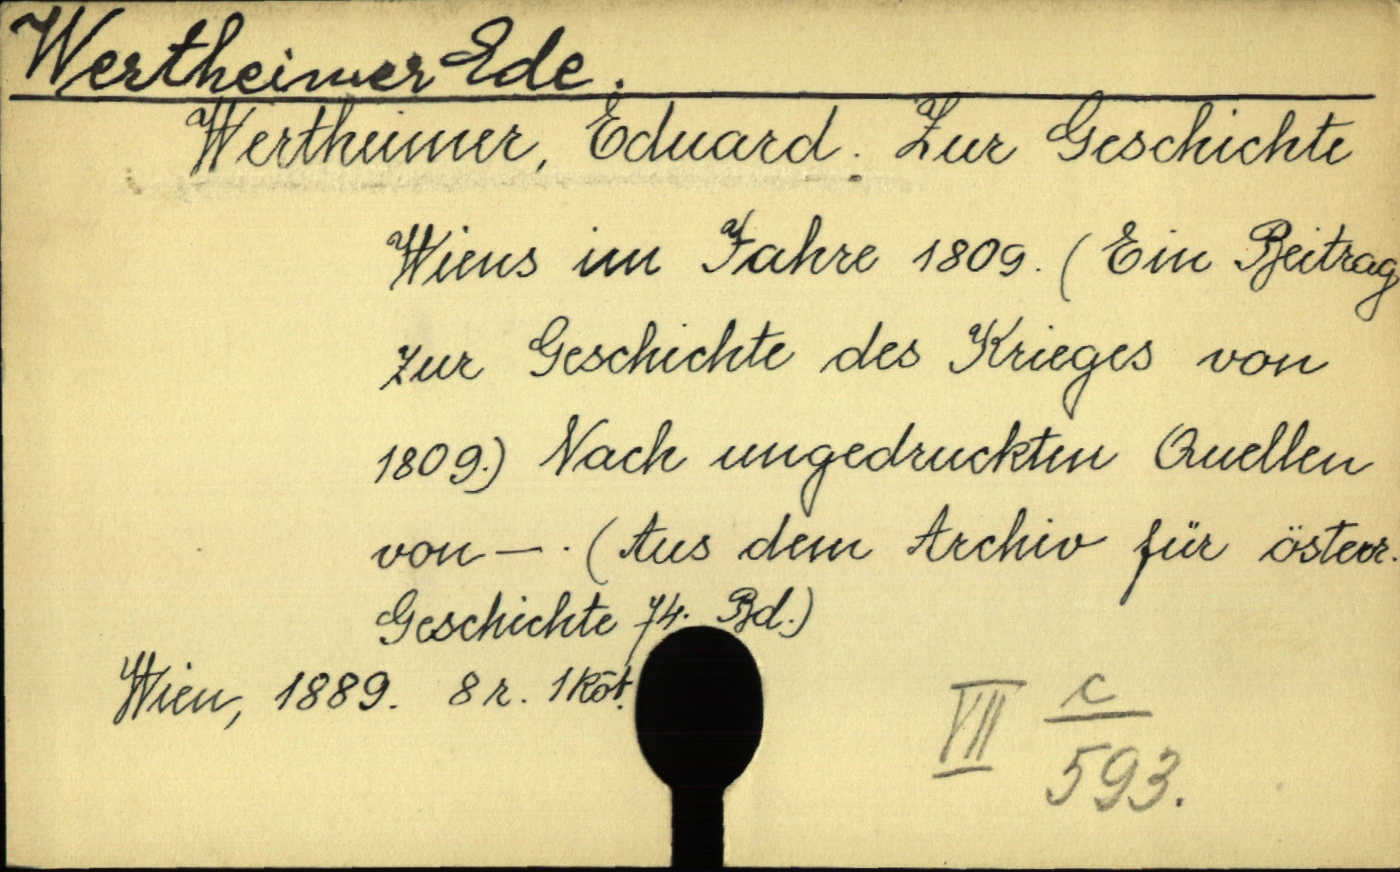 Wertheimer Ede.
Wertheimer, Eduard. Zur Geschichte
Wiens im Jahre 1809. (Ein Beitrag
zur Geschichte des Krieges von
1809.) Nach ungedruckten Quellen
von — . (Aus dem Archiv für österr.
Geschichte 74. Bd.)
Wien, 1889. 8 r. 1 köt.
VII c
593.